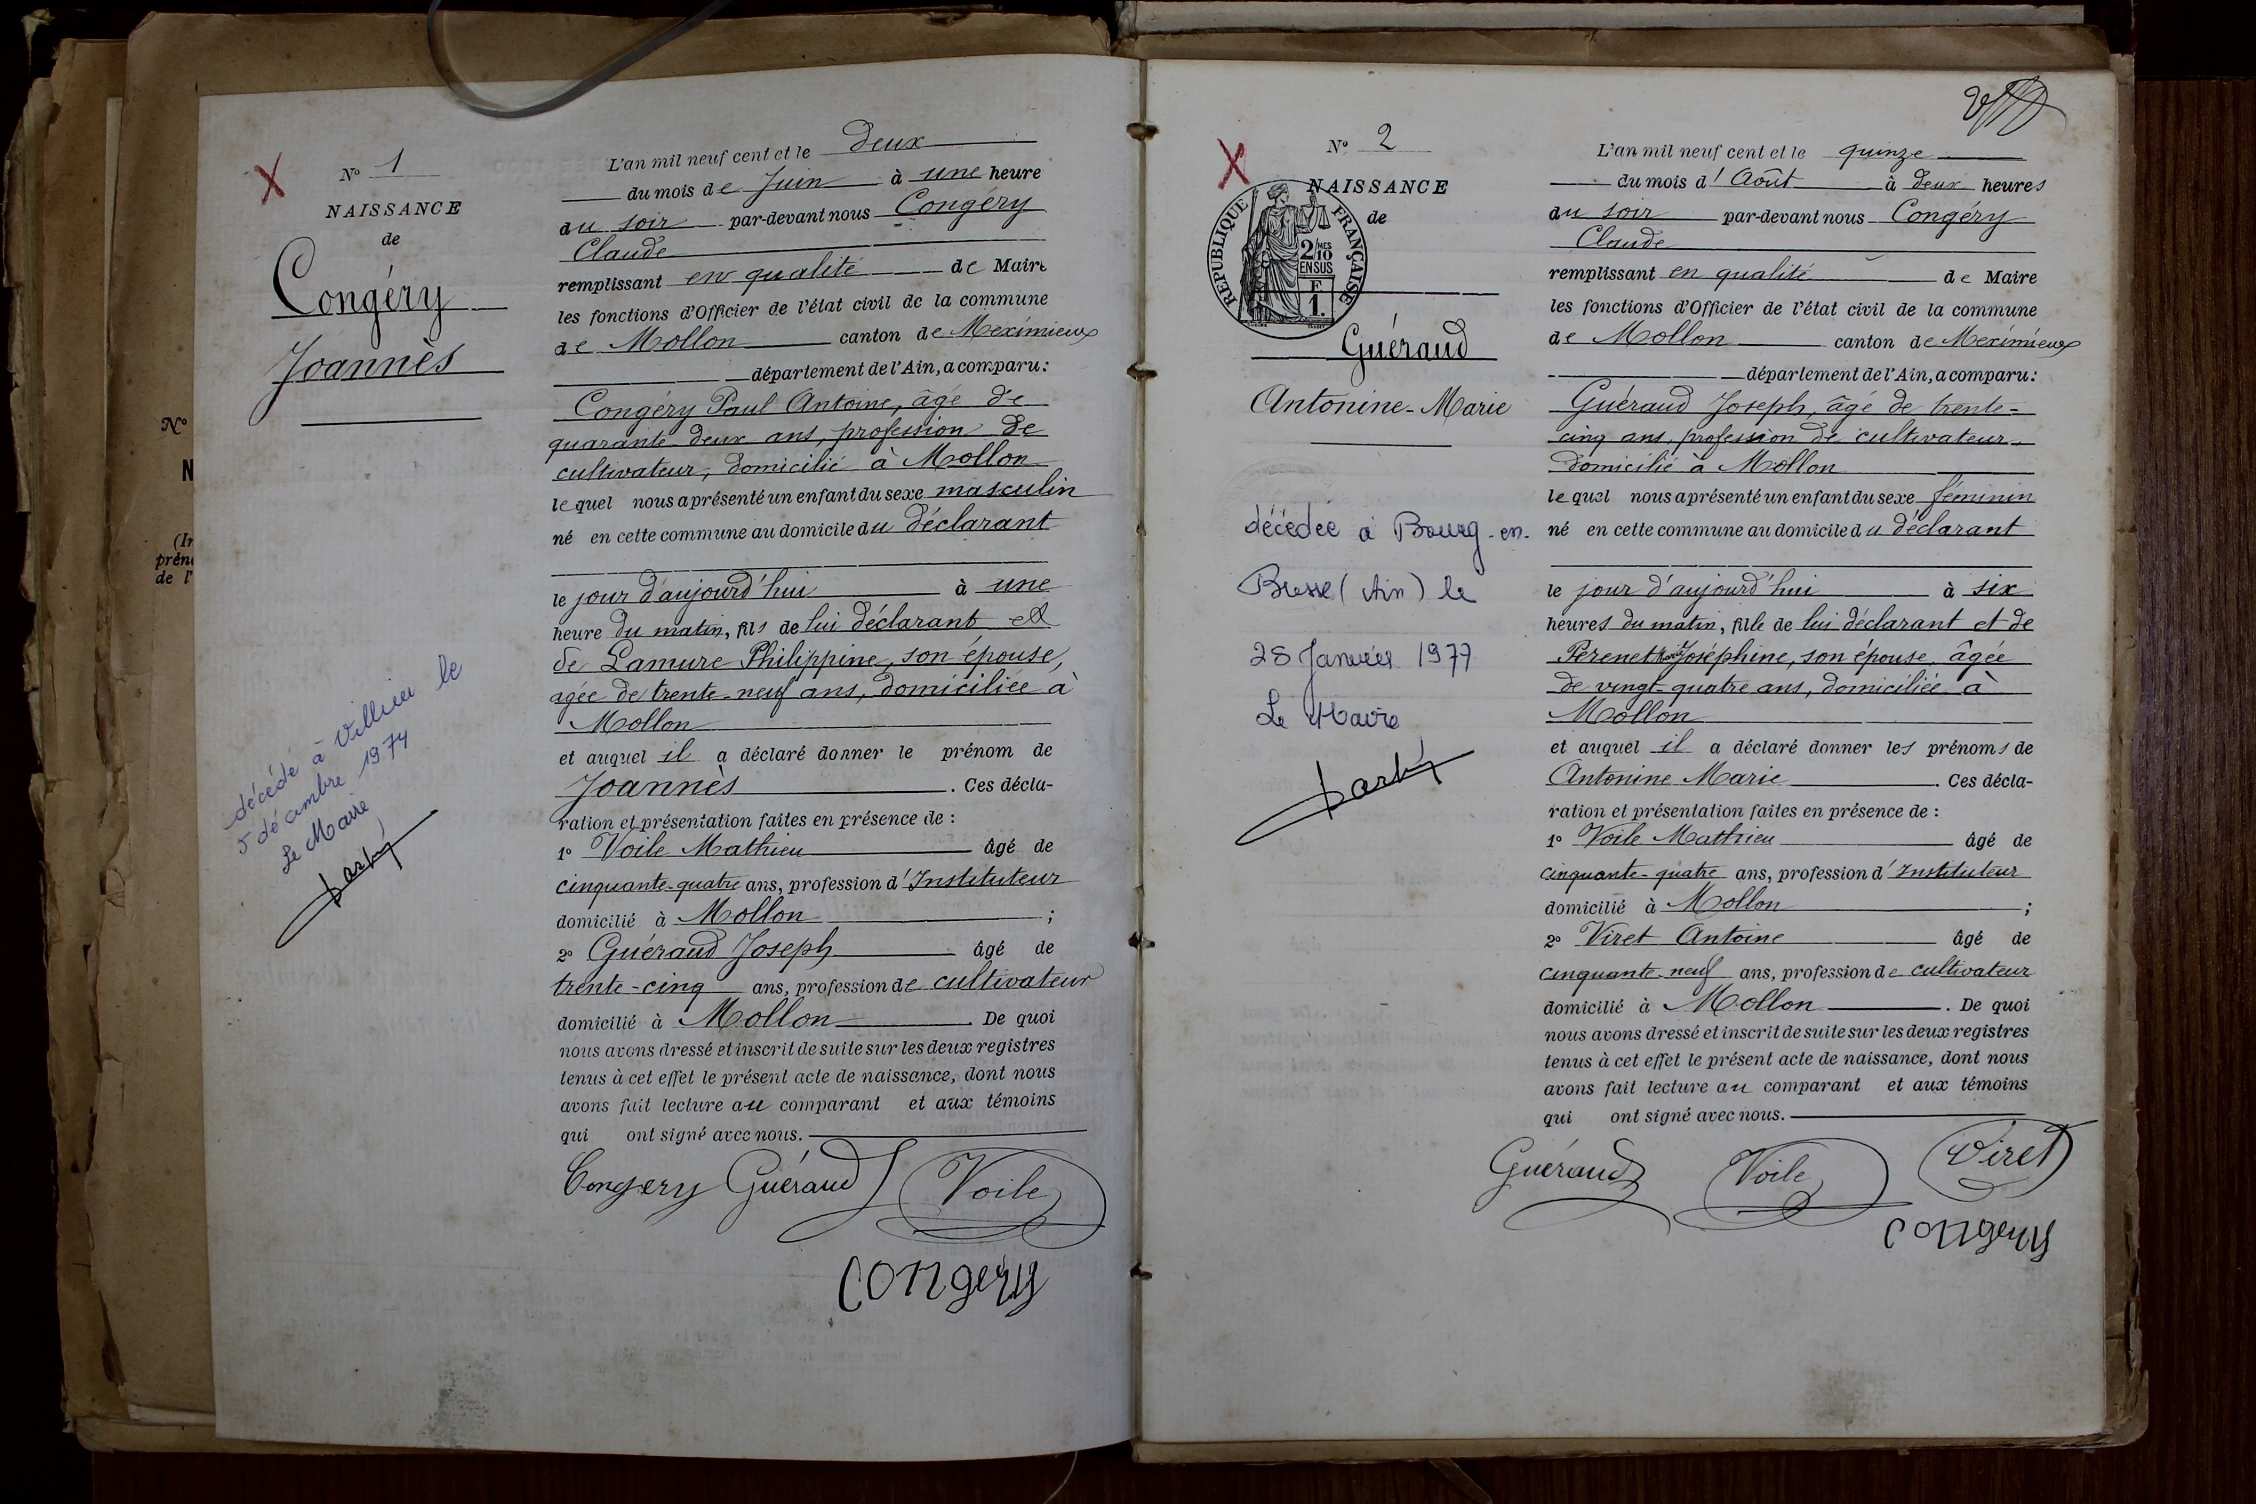 N°
N
(In
préno
de l'
N° 1
NAISSANCE
de
Congéry
Joannès
décédé à Villieu le
5 décembre 1974
Le Maire
L'an mil neuf cent et le deux
du mois de Juin à une heure
du soir par-devant nous Congéry
Claude
remplissant en qualité de Maire
les fonctions d'Officier de l'état civil de la commune
de Mollon canton de Meximieux
département de l'Ain, a comparu:
Congéry Paul Antoine, âgé de
quarante-deux ans, profession de
cultivateur, domicilié à Mollon
lequel nous a présenté un enfant du sexe masculin
né en cette commune au domicile du déclarant
le jour d'aujourd'hui à une
heure du matin, fils de lui déclarant et
de Lamure Philippine, son épouse,
agée de trente-neuf ans, domiciliée à
Mollon
et auquel il a déclaré donner le prénom de
Joannès. Ces décla-
ration et présentation faites en présence de :
1° Voile Mathieu âgé de
cinquante-quatre ans, profession d'Instituteur
domicilié à Mollon ;
2° Guéraud Joseph âgé de
trente-cinq ans, profession de cultivateur
domicilié à Mollon. De quoi
nous avons dressé et inscrit de suite sur les deux registres
tenus à cet effet le présent acte de naissance, dont nous
avons fait lecture au comparant et aux témoins
qui ont signé avec nous.
Congery Guéraud Voile
Congéry
N° 2
NAISSANCE
de
REPUBLIQUE FRANÇAISE
2/10 MES
EN SUS
F
1.
Guéraud
Antonine-Marie
décédée à Bourg-en-
Bresse (Ain) le
28 Janvier 1977
Le Maire
L'an mil neuf cent et le quinze
du mois d'Août à deux heures
du soir par-devant nous Congéry
Claude
remplissant en qualité de Maire
les fonctions d'Officier de l'état civil de la commune
de Mollon canton de Meximieux
département de l'Ain, a comparu:
Guéraud Joseph, âgé de trente-
cinq ans, profession de cultivateur
domicilié à Mollon
lequel nous a présenté un enfant du sexe féminin
né en cette commune au domicile du déclarant
le jour d'aujourd'hui à six
heures du matin, fille de lui déclarant et de
Perenet Joséphine, son épouse, âgée
de vingt-quatre ans, domiciliée à
Mollon
et auquel il a déclaré donner les prénoms de
Antonine Marie. Ces décla-
ration et présentation faites en présence de :
1° Voile Mathieu âgé de
cinquante-quatre ans, profession d'Instituteur
domicilié à Mollon ;
2° Viret Antoine âgé de
cinquante-neuf ans, profession de cultivateur
domicilié à Mollon. De quoi
nous avons dressé et inscrit de suite sur les deux registres
tenus à cet effet le présent acte de naissance, dont nous
avons fait lecture au comparant et aux témoins
qui ont signé avec nous.
Guéraud Voile Viret
Congery